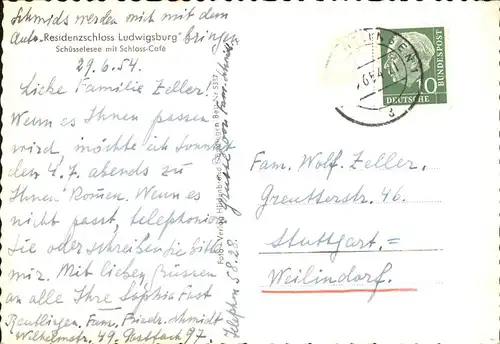 Schmidts werden mich mit dem
Auto bringen
"Residenzschloss Ludwigsburg"
Schüsselesee mit Schloss-Café
29.6.54.
Liebe Familie Zeller!
Wenn es Ihnen passen
wird, möchte ich Sonntag
den 4.7. abends zu
Ihnen kommen. Wenn es
nicht passt, telephonieren
Sie oder schreiben Sie bitte
mir. Mit lieben Grüssen
an alle Ihre Sophia Fast
Reutlingen. Fam. Friedr. Schmidt
Wilhelmstr. 49. Postfach 97.
Telephon 58.28.
Grüsse von Fam. Schmidt
5337
DEUTSCHE
BUNDESPOST
10
Fam. Wolf. Zeller.
Greutterstr. 46.
Stuttgart.=
Weilimdorf.